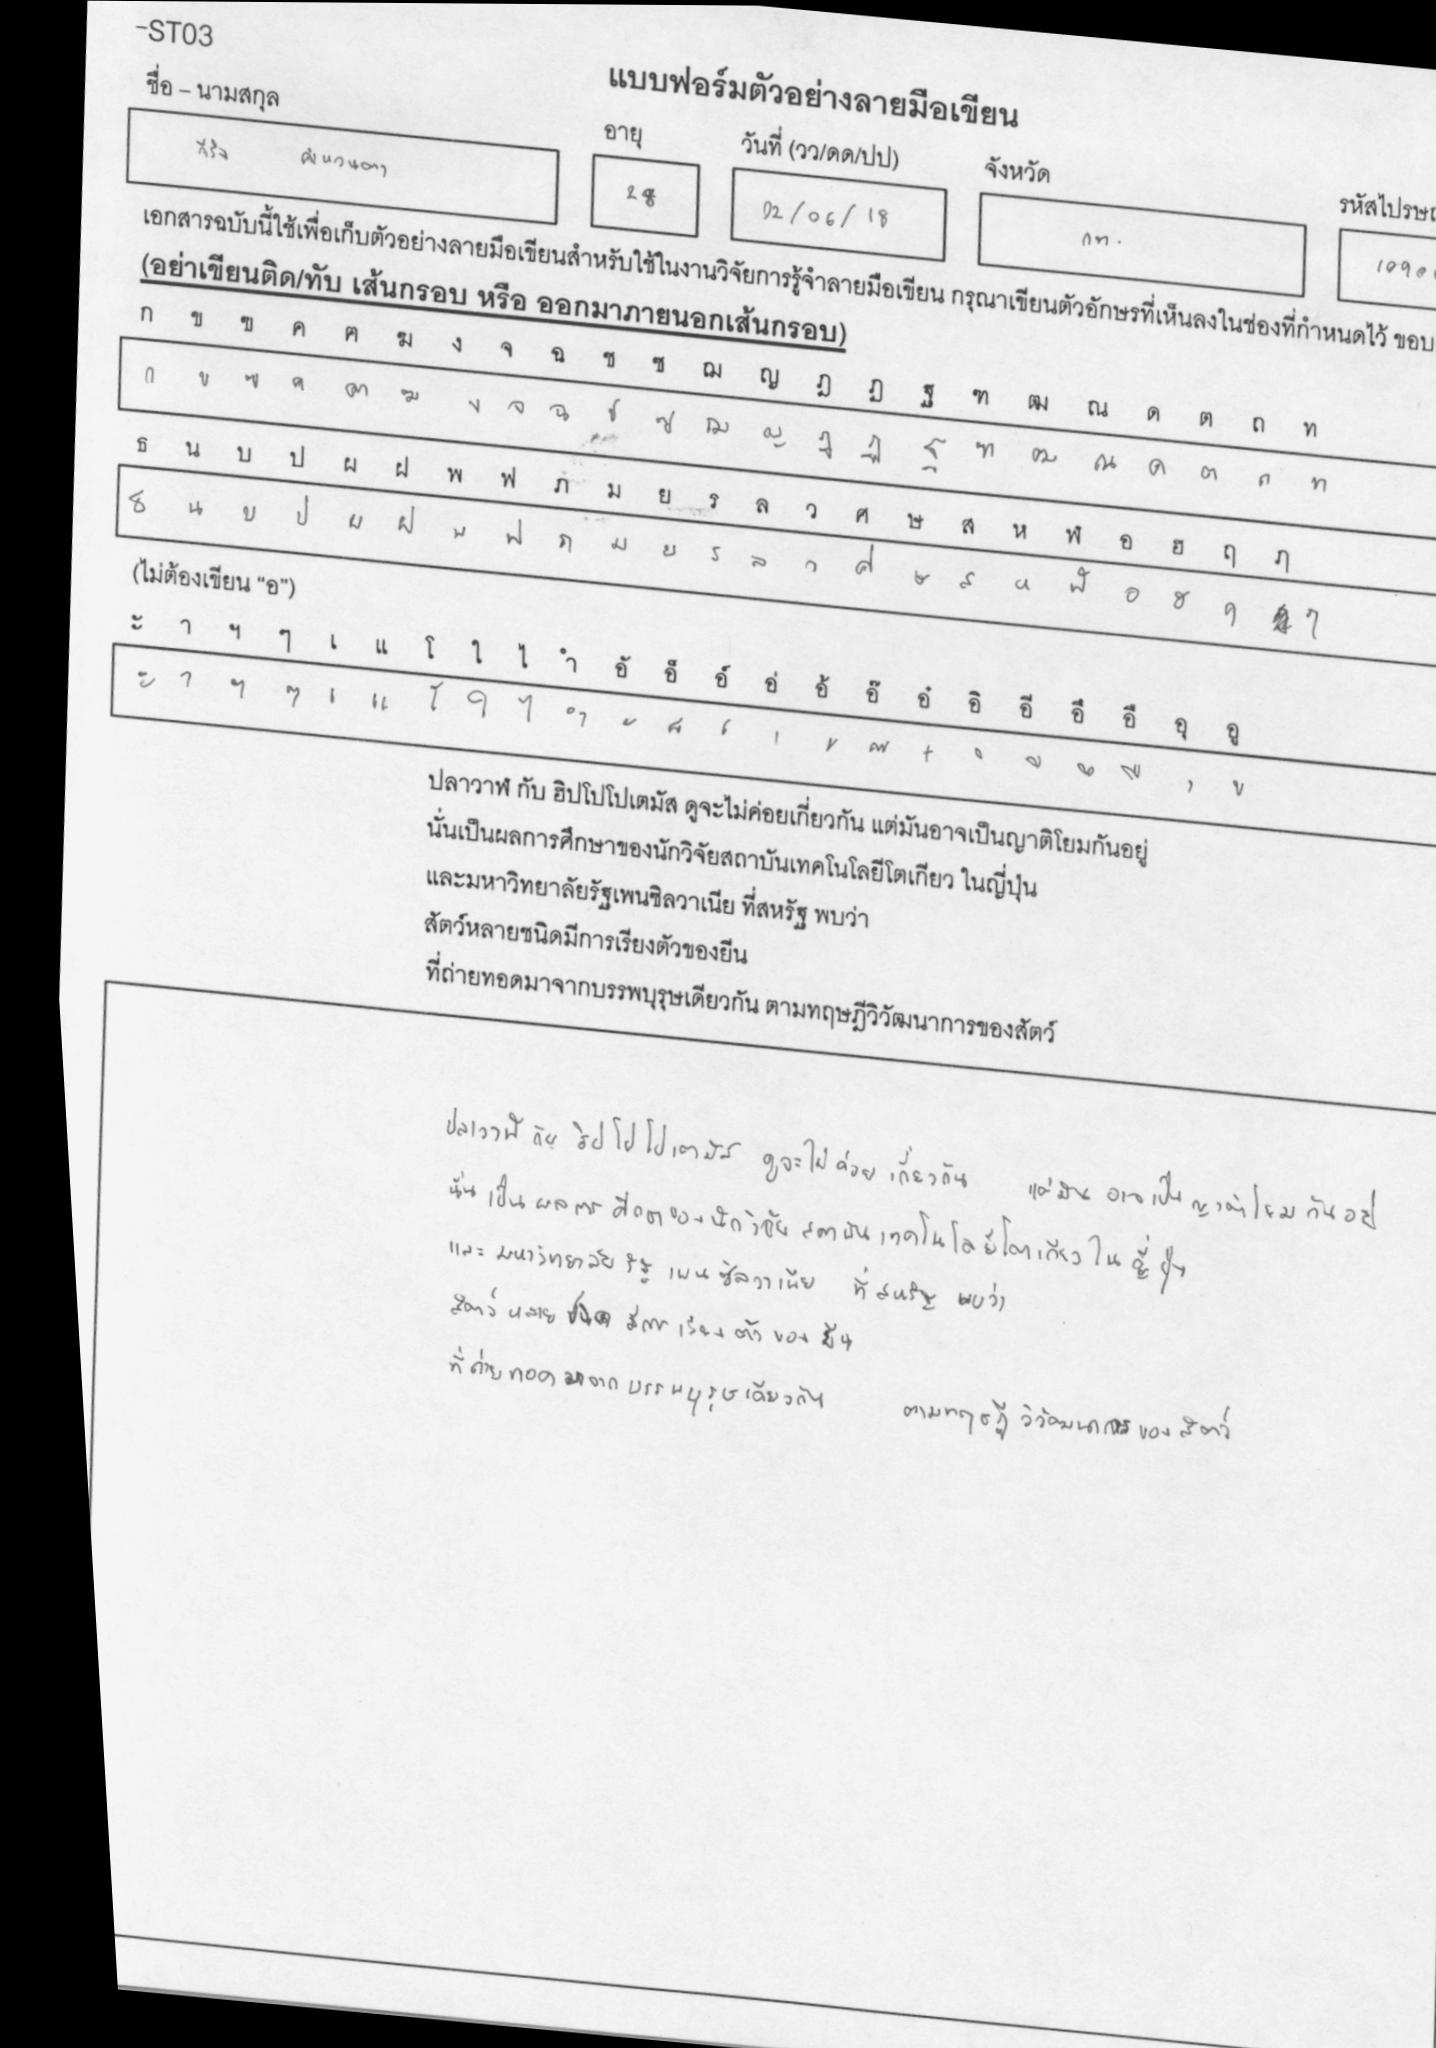 -ST03
แบบฟอร์มตัวอย่างลายมือเขียน
ชื่อ – นามสกุล อายุ วันที่ (วว/ดด/ปป) จังหวัด
28 02/06/18 กท.
เอกสารฉบับนี้ใช้เพื่อเก็บตัวอย่างลายมือเขียนสำหรับใช้ในงานวิจัยการรู้จำลายมือเขียน กรุณาเขียนตัวอักษรที่เห็นลงในช่องที่กำหนดไว้
(อย่าเขียนติด/ทับ เส้นกรอบ หรือ ออกมาภายนอกเส้นกรอบ)
ก ข ฃ ค ฅ ฆ ง จ ฉ ช ซ ฌ ญ ฎ ฏ ฐ ฑ ฒ ณ ด ต ถ ท
ก ข ฃ ค ฅ ฆ ง จ ฉ ช ซ ฌ ญ ฎ ฏ ฐ ฑ ฒ ณ ด ต ถ ท
ธ น บ ป ผ ฝ พ ฟ ภ ม ย ร ล ว ศ ษ ส ห ฬ อ ฮ ฤ ฦ
ธ น บ ป ผ ฝ พ ฟ ภ ม ย ร ล ว ศ ษ ส ห ฬ อ ฮ ฤ ฦ
(ไม่ต้องเขียน "อ")
ะ า ฯ ๆ เ แ โ ใ ไ ำ อั อ็ อ์ อ่ อ้ อ๊ อ๋ อิ อี อึ อื อุ อู
ะ า ฯ ๆ เ แ โ ใ ไ ำ ั ็ ์ ่ ้ ๊ ๋ ิ ี ึ ื ุ ู
ปลาวาฬ กับ ฮิปโปโปเตมัส ดูจะไม่ค่อยเกี่ยวกัน แต่มันอาจเป็นญาติโยมกันอยู่
นั่นเป็นผลการศึกษาของนักวิจัยสถาบันเทคโนโลยีโตเกียว ในญี่ปุ่น
และมหาวิทยาลัยรัฐเพนซิลวาเนีย ที่สหรัฐ พบว่า
สัตว์หลายชนิดมีการเรียงตัวของยีน
ที่ถ่ายทอดมาจากบรรพบุรุษเดียวกัน ตามทฤษฎีวิวัฒนาการของสัตว์
ปลาวาฬ กับ ฮิปโปโปเตมัส ดูจะไม่ค่อยเกี่ยวกัน แต่มันอาจเป็นญาติโยมกันอยู่
นั่นเป็นผลการศึกษาของนักวิจัยสถาบันเทคโนโลยีโตเกียว ในญี่ปุ่น
และมหาวิทยาลัยรัฐเพนซิลวาเนีย ที่สหรัฐ พบว่า
สัตว์หลายชนิดมีการเรียงตัวของยีน
ที่ถ่ายทอดมาจากบรรพบุรุษเดียวกัน ตามทฤษฎีวิวัฒนาการของสัตว์